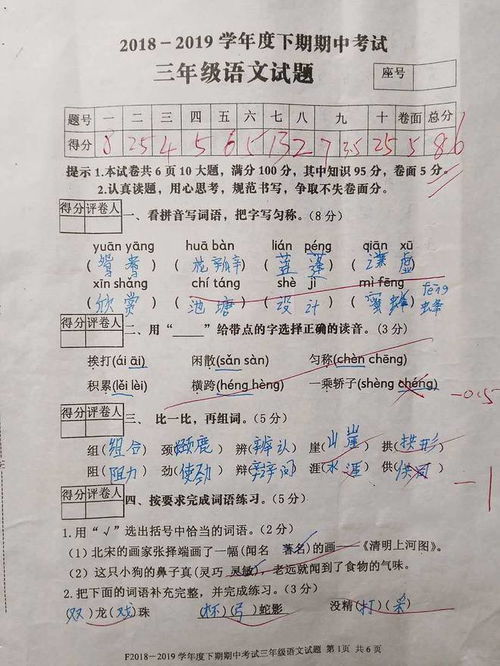 2018－2019学年度下期期中考试
三年级语文试题
座号
题号 一 二 三 四 五 六 七 八 九 十 卷面 总分
得分 8 25 4 5 6 5 13 2 7 35 25 5 86
提示 1.本试卷共6页10大题，满分100分，其中知识95分，卷面5分。
2.认真读题，用心思考，规范书写，争取不失卷面分。
得分 评卷人
一、看拼音写词语，把字写匀称。(8分)
yuān yāng huā bàn lián péng qiān xū
(鸳鸯) (花瓣) (莲蓬) (谦虚)
xīn shǎng chí táng shè jì mì fēng
(欣赏) (池塘) (设计) (蜜蜂)
fēng
蜂
得分 评卷人
二、用“____”给带点的字选择正确的读音。(3分)
挨打(ái āi) 闲散(sǎn sàn) 匀称(chèn chēng)
积累(lěi lèi) 横跨(héng hèng) 一乘轿子(shèng chéng)
-0.5
得分 评卷人
三、比一比，再组词。(5分)
组(组合) 颈(颈鹿) 辨(辨认) 崖(山崖) 拱(拱形)
阻(阻力) 劲(使劲) 辩(辩问) 涯(水涯) 供(供)
-1
得分 评卷人
四、按要求完成词语练习。(5分)
1.用“√”选出括号中恰当的词语。(2分)
(1)北宋的画家张择端画了一幅(闻名 著名)的画——《清明上河图》。
(2)这只小狗的鼻子真(灵巧 灵敏)，老远就闻到了食物的气味。
2.把下面的词语补充完整，并完成练习。(3分)
(双)龙(戏)珠 (杯)(弓)蛇影 没精(打)(采)
F2018－2019学年度下期期中考试三年级语文试题 第1页 共6页